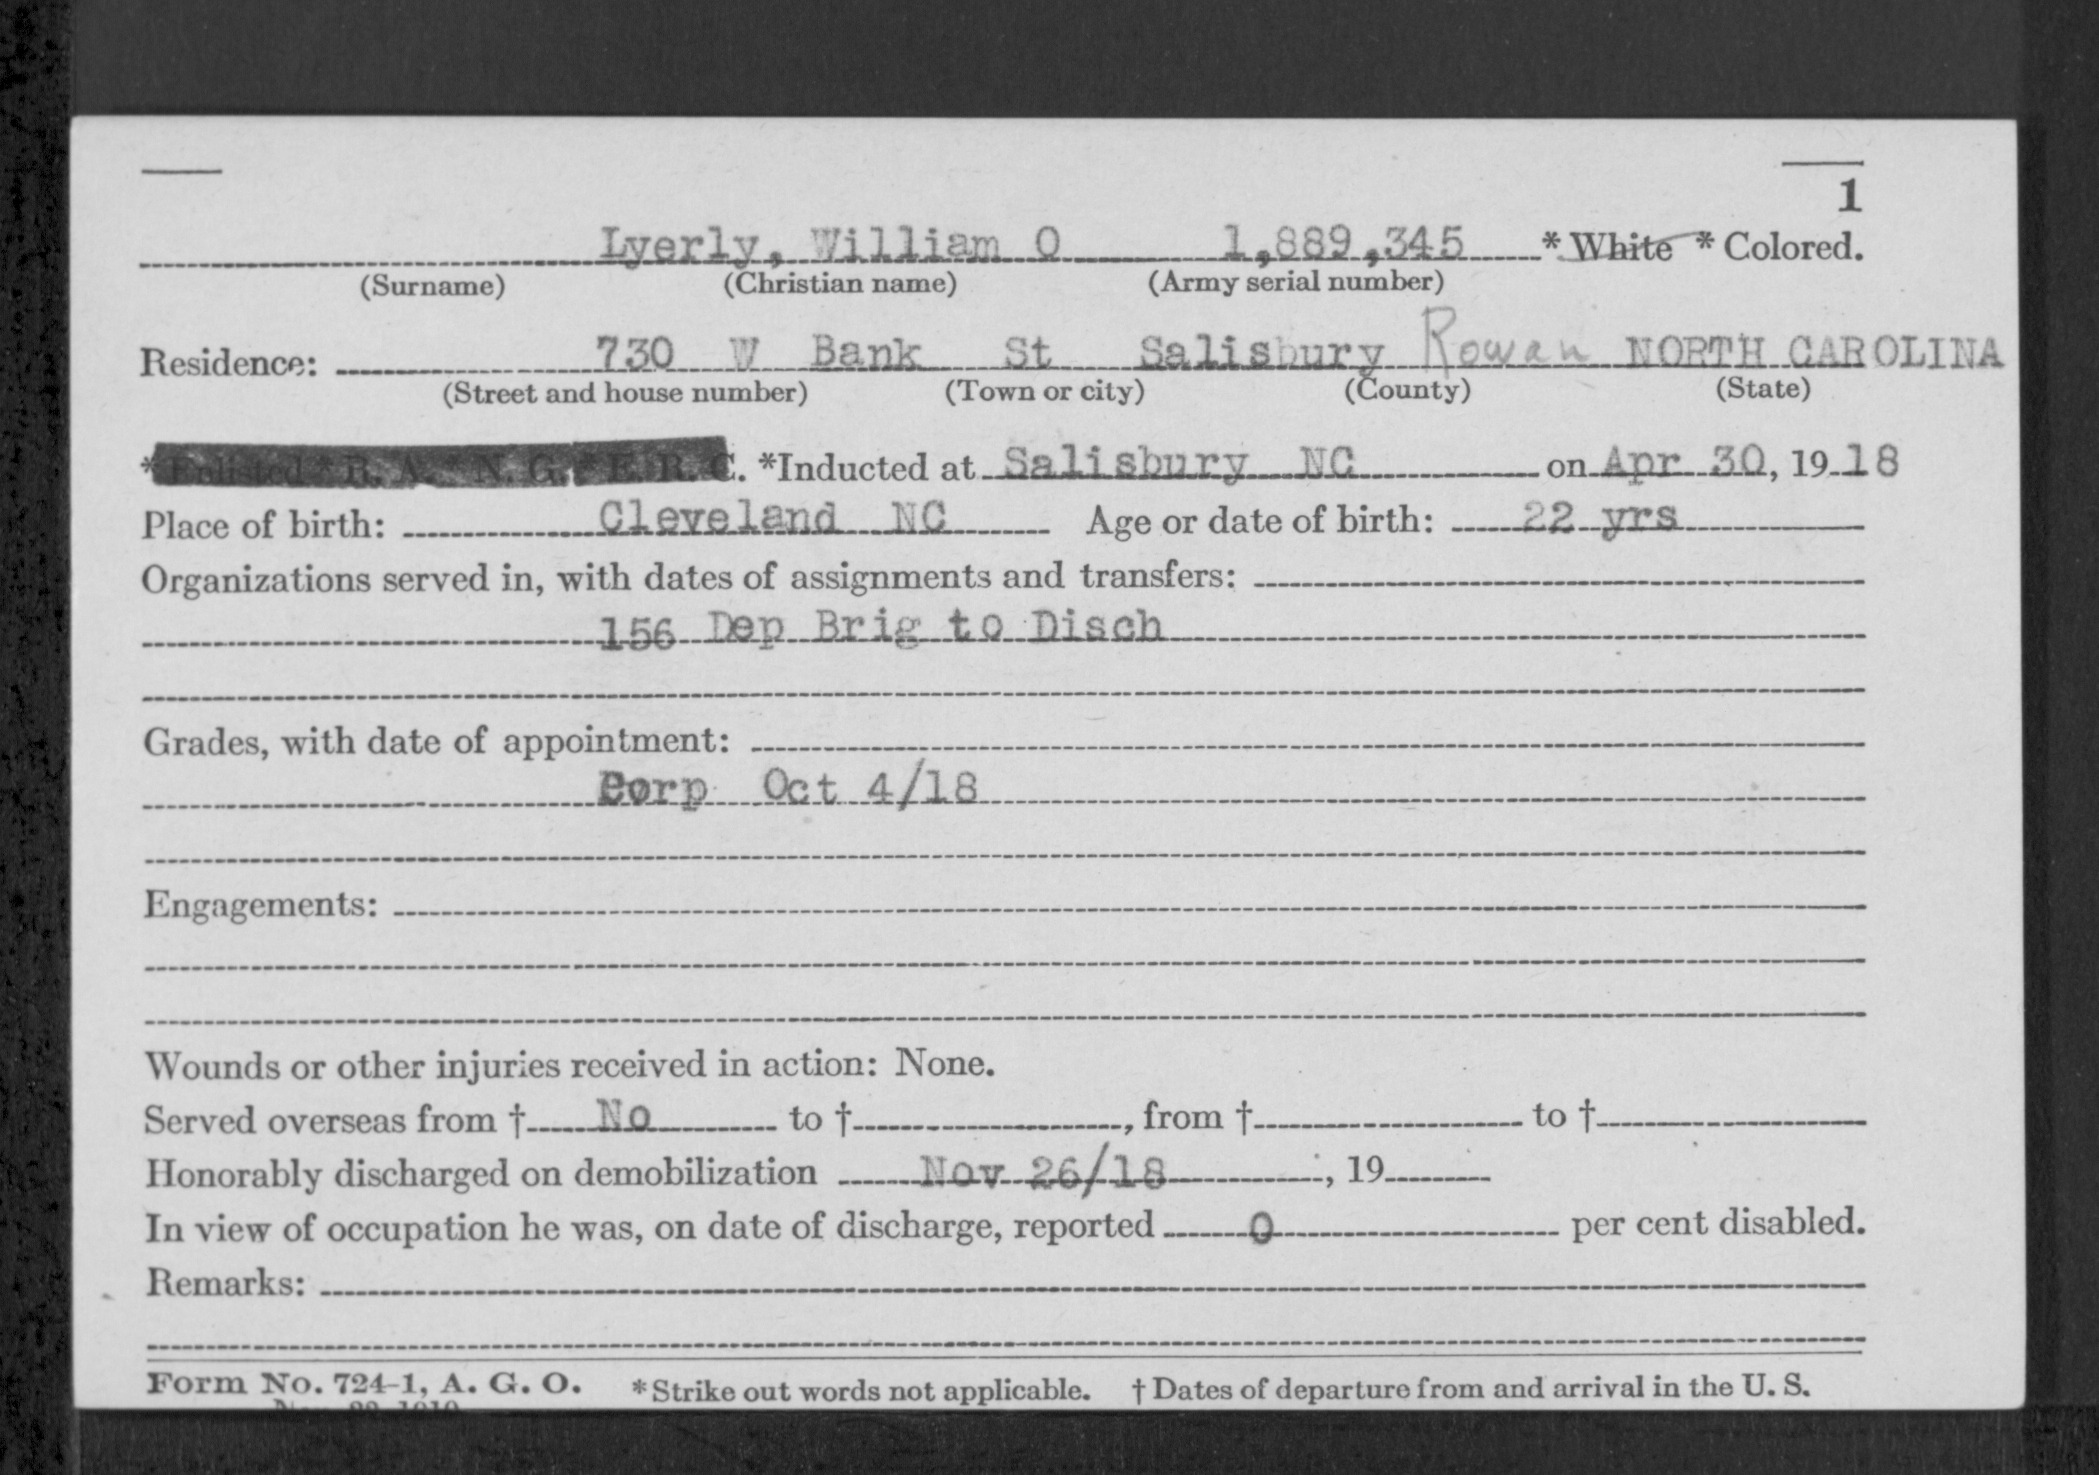 1
Lyerly, William O 1,889,345 * White * Colored.
(Surname) (Christian name) (Army serial number)
Residence: 730 W Bank St Salisbury Rowan NORTH CAROLINA
(Street and house number) (Town or city) (County) (State)
* Enlisted * R. A. * N. G. * E. R. C. *Inducted at Salisbury NC on Apr 30, 19 18
Place of birth: Cleveland NC Age or date of birth: 22 yrs
Organizations served in, with dates of assignments and transfers:
156 Dep Brig to Disch
Grades, with date of appointment:
Corp Oct 4/18
Engagements:
Wounds or other injuries received in action: None.
Served overseas from † No to †, from † to †
Honorably discharged on demobilization Nov 26/18, 19
In view of occupation he was, on date of discharge, reported 0 per cent disabled.
Remarks:
Form No. 724-1, A. G. O. * Strike out words not applicable. † Dates of departure from and arrival in the U. S.